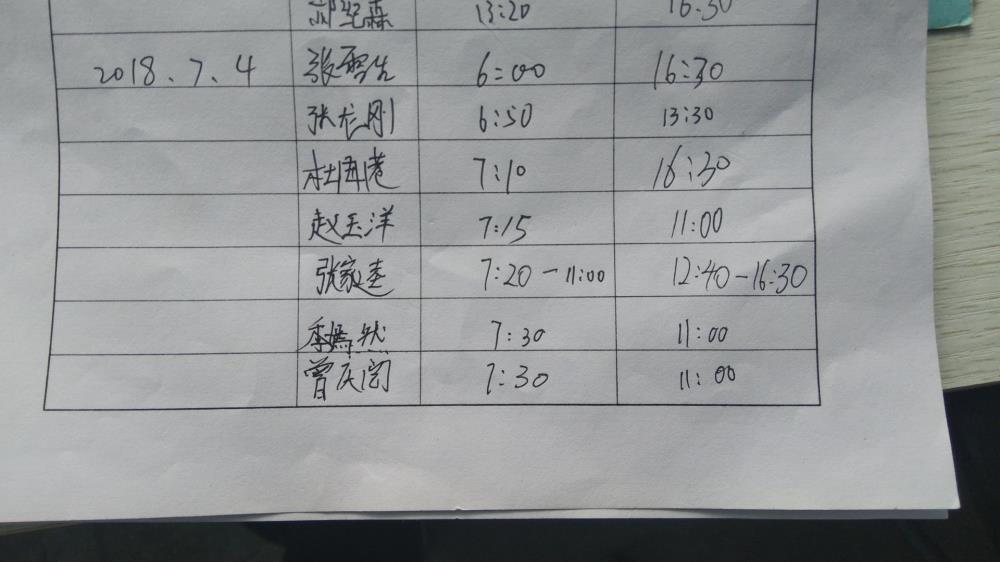 13:20 16:30
2018.7.4 张 6:00 16:30
张龙刚 6:50 13:30
杜再港 7:10 16:30
赵玉洋 7:15 11:00
张家 7:20-11:00 12:40-16:30
季嫣然 7:30 11:00
曾庆阁 7:30 11:00